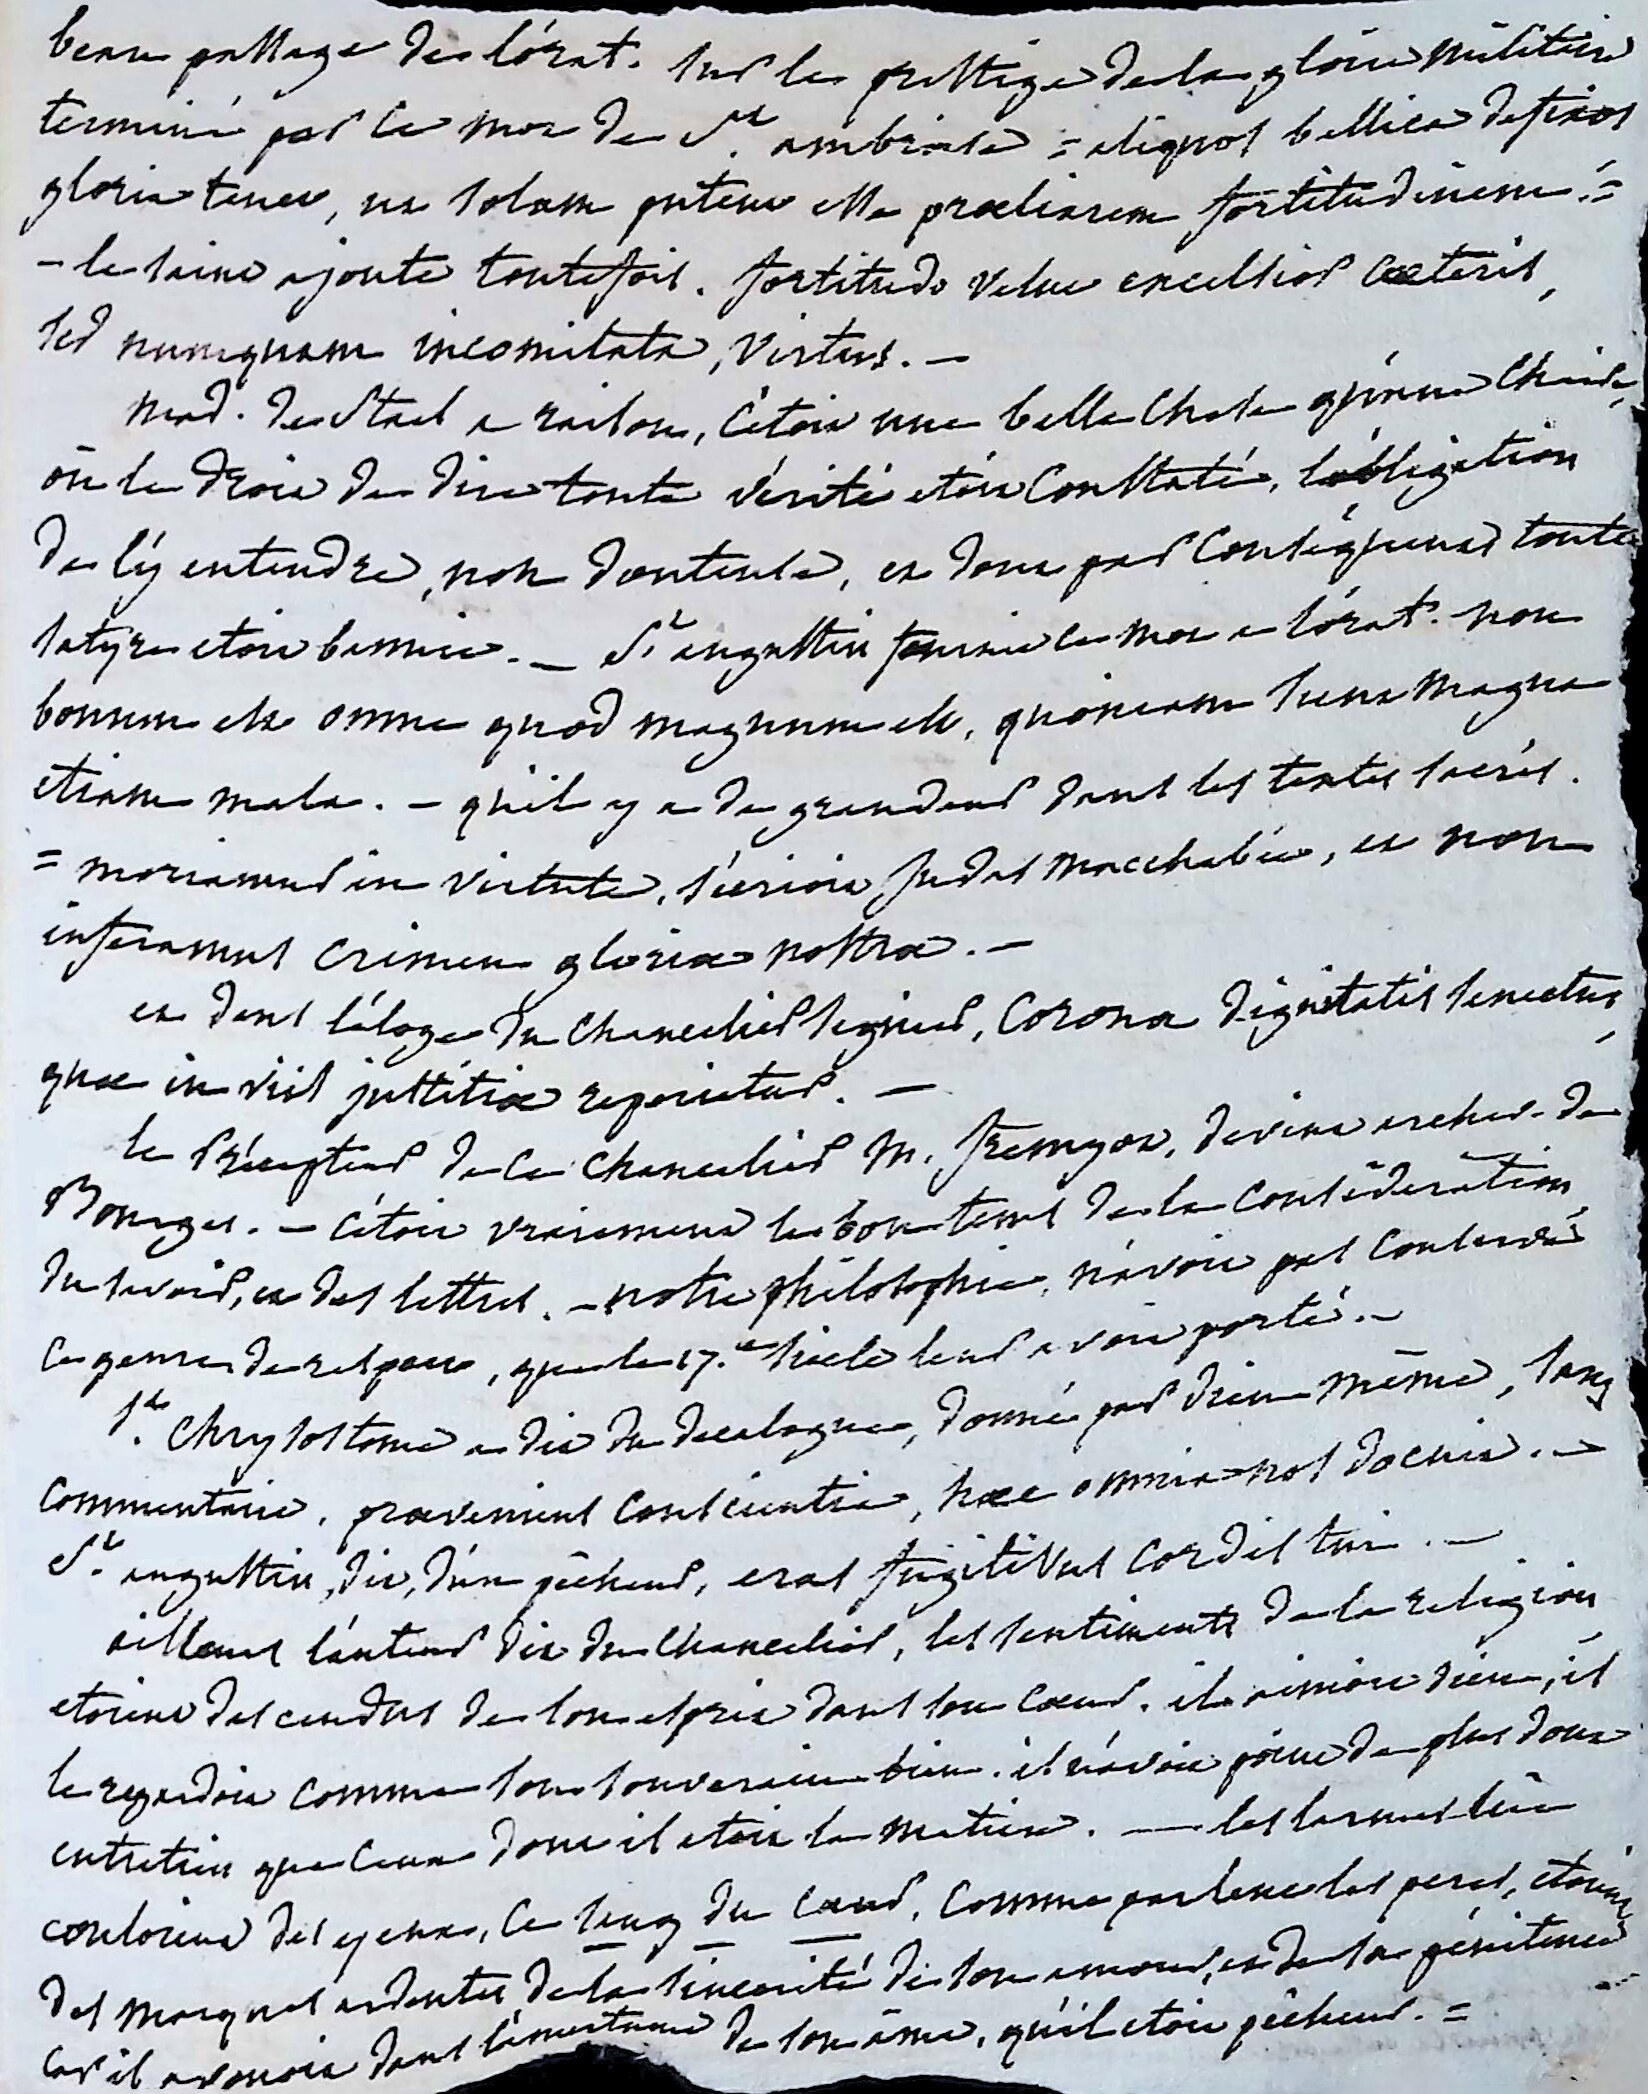 beau passage de l'orat. sur le prestige de la gloire militaire
terminé par ce mot de St. ambroise = aliquos bellica defixos
gloria tenet, ut solam putent esse prœliarem fortitudinem. =
- le saint ajoute toutefois. fortitudo velut excelsior cæteris,
sed nunquam incomitata, virtus. -
mad. de Stael a raison, c'étoit une belle chose qu'une chaire,
où le droit de dire toute vérité etoit constaté, l'obligation
de l'y entendre, non douteuse, et dont par conséquent toute
satyre etoit bannie. - St augustin fournit ce mot a l'orat. non
bonum est omne quod magnum est, quoniam sunt magna
etiam mala. - qu'il y a de grandeur dans les textes sacrés.
= moriamur in virtute, s'écrioit Judas Macchabée, et non
inferamus crimen gloriæ nostræ. -
et dans l'éloge du chancelier seguier, Corona dignitatis senectus,
quæ in viis justitiæ reperietur. -
le Précepteur de ce chancelier M. fremyot, devint archev. de
Bourges. - c'étoit vraiment le bon tems de la considération
du savoir, et des lettres. - notre philosophie, n'avoit pas conservé
ce genre de respect, que le 17.e siècle leur avoit porté. -
St. Chrysostome a dit du decalogue, donné par dieu même, sans
commentaire, præveniens conscientia, hæc omnia nos docuit. -
St. augustin, dit, d'un pécheur, eras fugitivus cordis tui. -
ailleurs l'auteur dit du chancelier, les sentiments de la religion
etoient descendus de son esprit dans son cœur. il aimoit dieu, il
le regardoit comme son souverain bien. il n'avoit point de plus doux
entretien que ceux dont il etoit la matiere. - les larmes lui
couloient des yeux, ce sang du cœur, comme parlent les peres, etoient
des marques ardentes, de la sincerité de son amour, et de sa pénitence
car il avouoit dans l'amertume de son âme, qu'il etoit pécheur. =